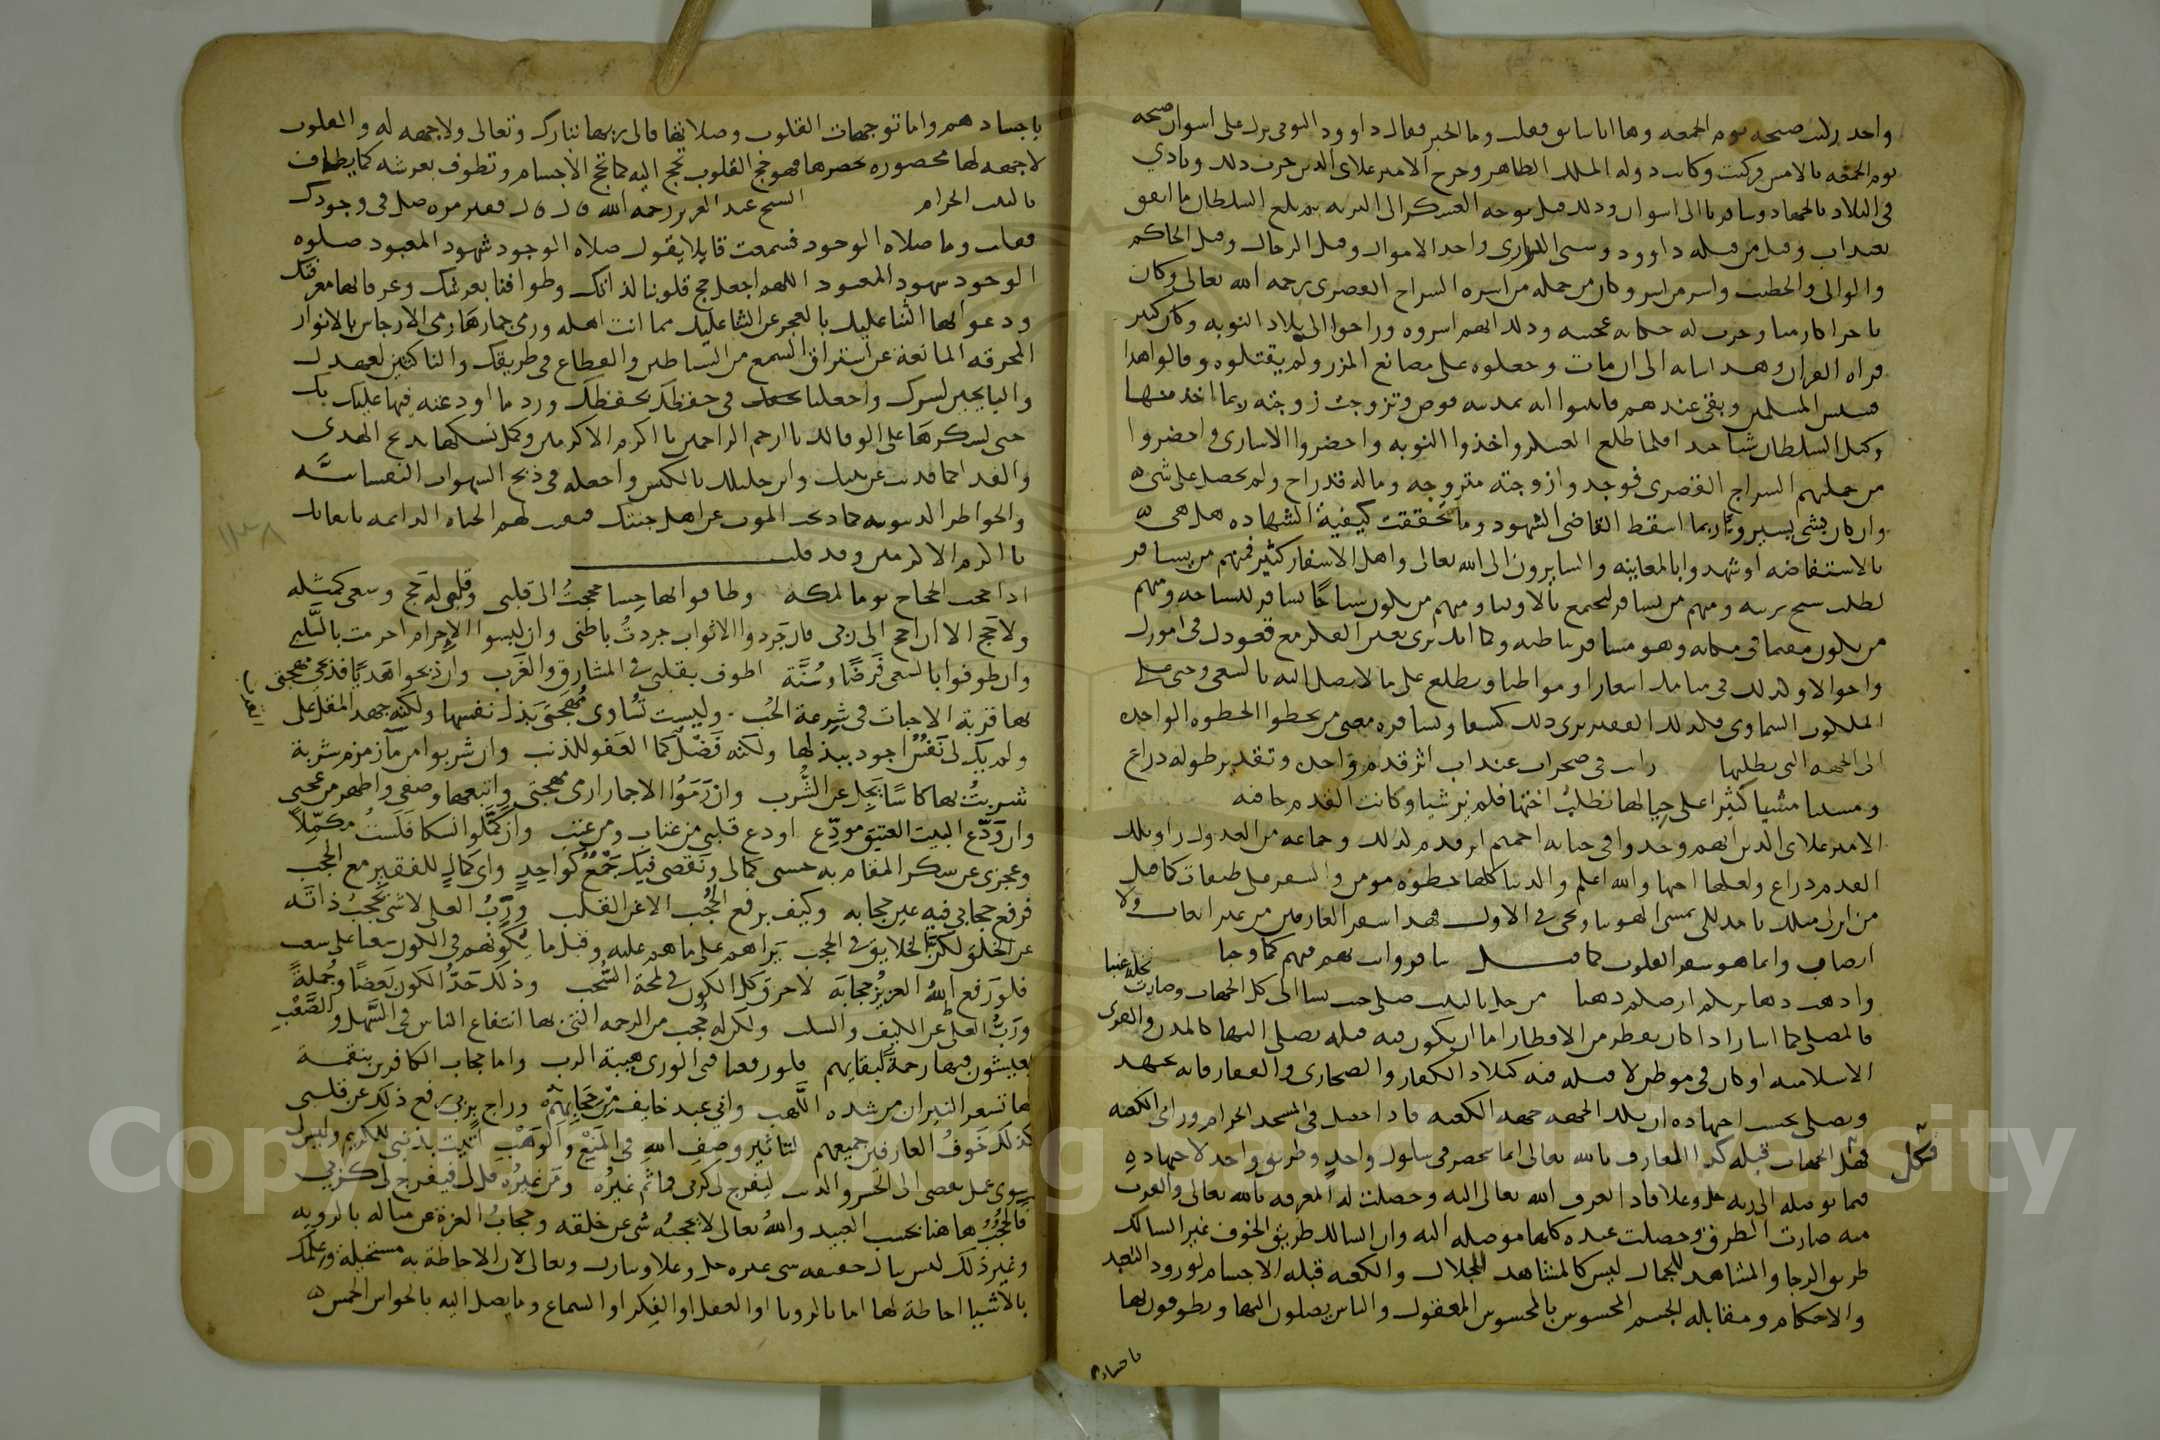 واحد ركبت صبحه يوم الجمعه وها انا سابق فقلت وما الخبر فقال داوود النوبى نزل على اسوان صبحه
يوم الجمعه بالامس وركبت وكانت دوله الملك الظاهر وخرج الامير علاى الدين حرب دلك ونادي
فى البلاد بالجهاد وسافر الى اسوان ودلك قبل توجه العسكر الى النوبه ثم بلغ السلطان ما اتفق
بعيداب وقيل من قبله داوود وسبى الدرارى واخد الاموال وقتل الرجال وقتل الحاكم
والوالى والخطيب واسر من اسر وكان من جمله من اسره السراج القصرى رحمه الله تعالى وكان
تاجرا كارميا وجرت له حكايه عجيبه ودلك انهم اسروه وراحوا الى بلاد النوبه وكان كثير
قراه القران وهد اسابه الى ان مات وجعلوه على مصانع المزر ولم يقتلوه وقالوا هدا
قسيس المسلمين وبقى عندهم فاثبتوا انه بمدينه قوص وتزوجت زوجته ربما اخذ منها
وكيل السلطان شيا جيدا فلما طلع العسكر واخذوا النوبه واحضروا الاسارى واحضروا
من جملتهم السراج القصرى فوجد وازوجته متزوجه وماله قد راح ولم يحصل على شى
وان كان بشى يسير وربما اسقط القاضى الشهود وما تحققت كيفية الشهاده هل هى
بالاستفاضه او شهدوا بالمعاينه والسايرون الى الله تعالى واهل الاسفار كثير فمنهم من يسافر
لطلب شيخ يربيه ومنهم من يسافر ليجتمع بالاوليا ومنهم من يكون سياحًا يسافر للسياحه ومنهم
من يكون مقيما فى مكانه وهو مسافر بباطنه وكما انك ترى بعين الفكر مع قعودك فى امورك
واحوالا وكدلك فى منامك اسفارا ومواطنا وتطلع على ما لا تصل اليه بالسعى وحتى على
الملكوت السماوى فكدلك الفقير يرى دلك كشفا ولسافره معنى من يخطوا الخطوه الواحده
الى الجهه التى يطلبها رايت فى صحراء عنداب اثر قدم واحده وتقدير طوله دراع
ومشينا مشيا كثيرا على حيالها نطلب اختها فلم نر شيا وكانت القدم حافيه
الامير علاى الدين انهم وجدوا فى جنابه احميم اثر قدم كدلك وجماعه من العدول راو تلك
القدم دراع ولعلها اختها والله اعلم والدنيا كلها خطوه مومن والسفر على طبقات كامل
من اين لى مثلك يا مدللى تمشى الهوينا وتجى فى الاول فهدا سفر العارفين من غير اتعاب ولا
ارصاب وانما هو سفر القلوب كما قيل سافروا بهم فيهم كما وجبا
وادهب دهابهم ارصلم دهبا من حل بالبيت صلى حيث شا الى كل الجهات وصارت كله عتبا
فالمصلى كما اشار اذا كان بقطر من الاقطار اما ان يكون فيه قبله يصلى اليها كالمدن والقرى
الاسلاميه او كان فى موطن لا قبله فيه كبلاد الكفار والصحارى والقفار فانه يجتهد
ويصلى بحسب اجتهاده ان تلك الجهه جهه الكعبه فاذا حصل فى المسجد الحرام وراى الكعبه
فكل
فكل الجهات قبله كدا المعارف بالله تعالى انما تنحصر فى سلوك واحد وطريق واحد لاجتهاده
فيما يوصله الى ربه جل وعلا فاذا تعرف الله تعالى اليه وحصلت له المعرفه بالله تعالى والقرب
منه صارت الطرق وحصلت عنده كلها موصله اليه وان السالك طريق الخوف غير السالك
طريق الرجا والمشاهد للجمال ليس كالمشاهد للجلال والكعبه قبله الاجسام لورود التعبد
والاحكام ومقابله الجسم المحسوس بالمحسوس المعقول والناس يصلون اليها ويطوفون بها
باجسادهم
باجسادهم واما توجهات القلوب وصلاتها فالى ربها تبارك وتعالى ولا جهه له والقلوب
لا جهه لها محصوره تحصرها فهو حج القلوب تحج اليه كما تحج الاجسام وتطوف بعرشه كما يطاف
بالبيت الحرام الشيخ عبد العزيز رحمه الله قال قال فقير مره صل فى وجودك
فقلت وما صلاه الوجود فسمعت قايلا يقول صلاه الوجود شهود المعبود صلوه
الوجود شهود المعبود اللهم اجعل حج قلوبنا لذاتك وطوافنا بعرشك وعرفانها معرفتك
ودعوانها الثنا عليك بالعجز عن الثنا عليك مما انت اهله ورمى جمارها رمى الارجاس بالانوار
المحرقه المانعة عن استراق السمع من الشياطين والقطاع فى طريقك والناكثين لعهدك
والبايحين لسرك واجعلنا فى حفظك بحفظك ورد ما اودعته فيها عليك بك
حتى تشكرها على الوفا لك يا ارحم الراحمين يا اكرم الاكرمين وكمل نسكها بدبح الهدى
والفدا كما فديت عن نبيك وابن خليلك بالكبش واجعله فى ذبح الشهوات النفسانيه
والخواطر الدنيويه كما دبحت الموت عن اهل جنتك فبقيت لهم الحياه الدايمه ببقايك
يا اكرم الاكرمين وقد قلت
اذا حجت الحجاج يوما لمكه وطافوا بها حسا حججتُ الى قلبى وقلبى له حج وسعى كمثله
ولا حج الا ان احج الى ربى فان جردوا الاثواب جردتُ باطنى وان لبسوا الاحرام احرمت بالسلب
وان طوفوا بالسعى فرضًا وسُنَّة اطوف بقلبى فى المشارق والغرب وان ذبحوا هديًا فذبحى مهجتى
بها قربة الاحباب فى شرعة الحُب وليست تساوى مهجتى بذل نفسها ولكنه جهد المقل على القرب
ولم يك لى نفسٌ اجود ببذلها ولكنه فضلٌ كما العفو للذنب وان شربوا من مآ زمزم شربة
شربتُ بها كاسًا يجل عن الشُّرب وان رموا الاجمار ارمى مهجتى واتبعها وصفى واطهر من عجبى
وان ودّع البيت العتيق مودّع اودع قلبى من عتاب ومن عتب وان كمّلوا نسكا فلستُ مكمّلاً
وعجزى عن شكر المقام به حسبى كمالى ونقصى فيك جمعٌ كواحدٍ واى كمالٍ للفقير مع الحجب
فرفع حجابى فيه عين حجابه وكيف برفع الحُجب الا عن القلب وربُّ العلى لا شى يحجبُ ذاته
عن الخلق لكن الخلايق فى الحجب يراهم على ما هم عليه وقبل ما يكونهم فى الكون شعبا على شعب
فلو رفع اللهُ العزيزُ حجابَه لاحرق كل الكون فى لمحة السُّحب وذلك حدُّ الكون بعضًا وجملةً
وربُّ العلى عن الكيف والسلب ولكن له حُجب من الرحمه التى بها انتفاع الناس فى السَّهل والصَّعب
يعيشون فيها رحمةً لبقايهم فلو رفعها فنى الورى هيبة الرب واما حجاب الكافرين بنقمة
لها تسعر النيران من شده اللهب وانى عبد خايف من حجابهم وراج بربى يرفع ذلك عن قلبى
كذلك خوفُ العارفين جميعهم لتاثير وصف الله فى المنع والوهب اتيت بذنبى للكريم وليس لى
سوى عمل يقصى الى الخسر والذنب ليفرج لى كربى فما ثم غيرُه ومن غيرُه مل لى فيفرج لى كربى
فالحجُبُ هاهنا بحسب العبيد واللهُ تعالى لا يحجبُه شى عن خلقه وحجابُ العزة عن مناله بالرويه
وغير ذلك ليس ينال حقيقه شى غيره جل وعلا وتبارك وتعالى لان الاحاطة به مستحيلة وعلمك
بالاشيا احاطة لها اما بالرويا او العقل او الفكر او السماع وما يصل اليه بالحواس الخمس
١١٣٨
Copyright © King Saud University